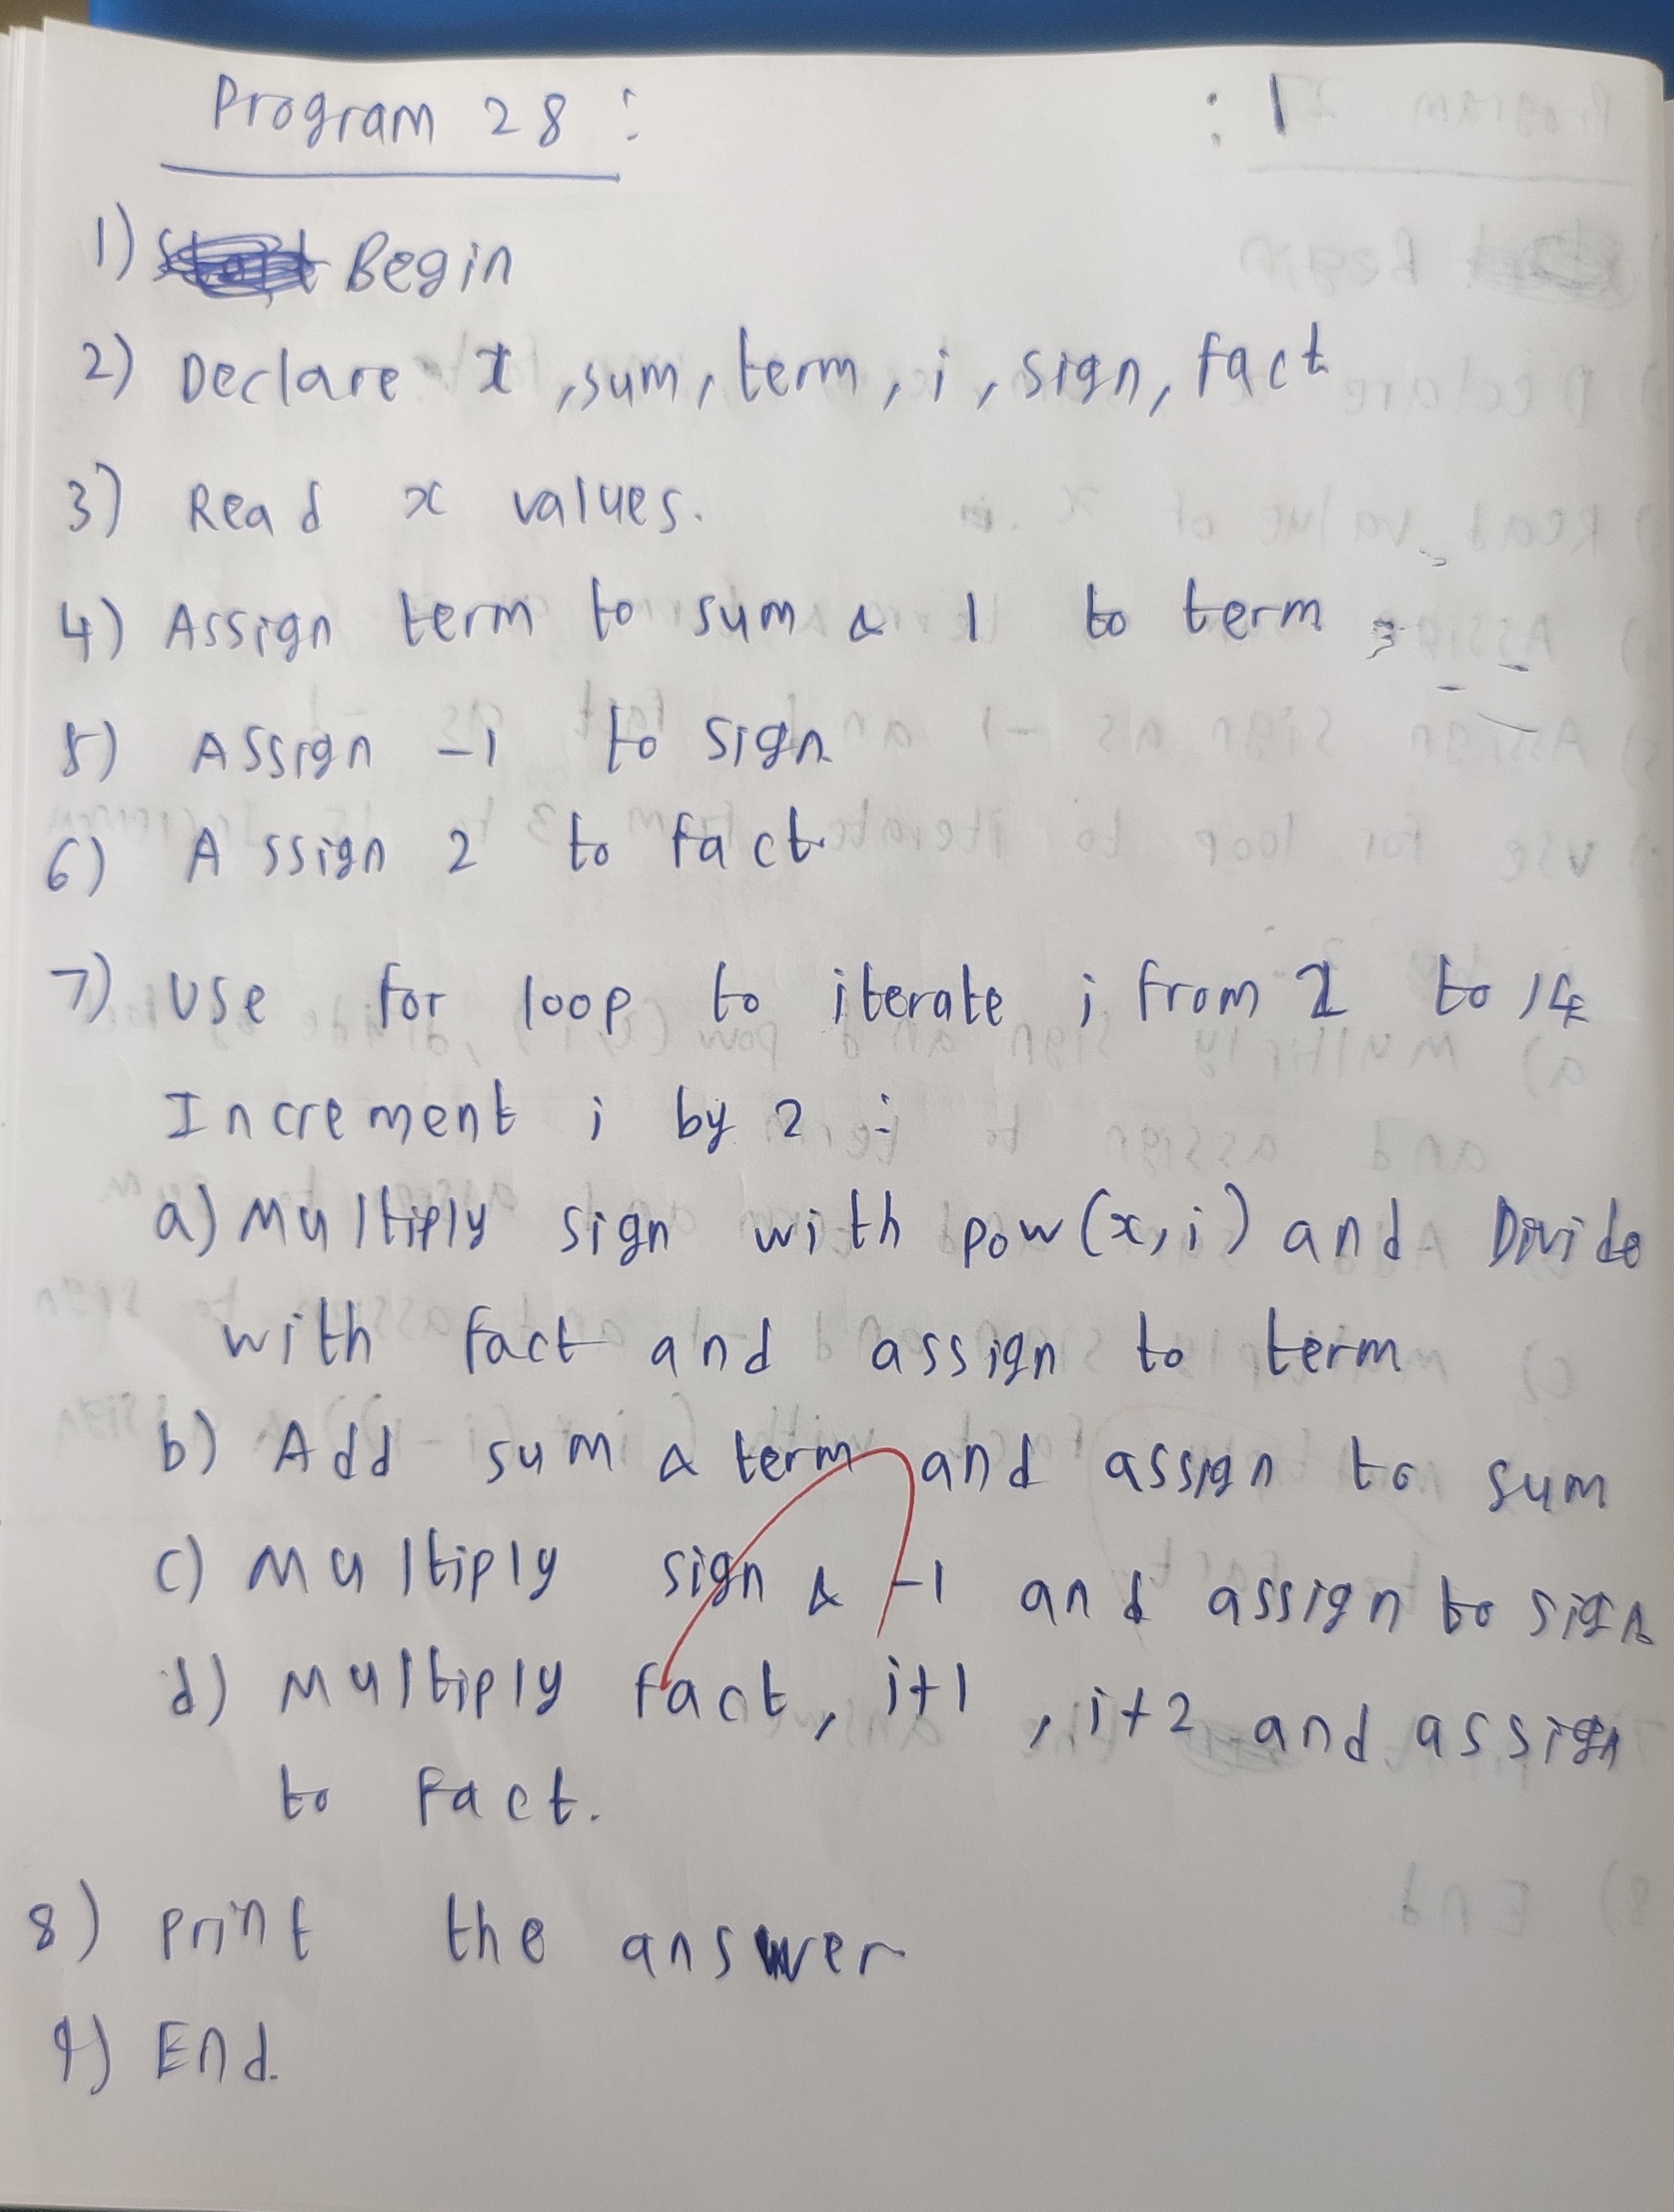 Program 28 :
1) Begin
2) Declare x , sum, term, i, sign, fact
3) Read x values.
4) Assign term to sum & 1 to term
5) Assign -1 to sign
6) Assign 2 to fact
7) Use for loop to iterate i from 2 to 14
Increment i by 2 :
a) Multiply sign with pow(x,i) and Divide
with fact and assign to term
b) Add sum & term and assign to sum
c) Multiply sign & -1 and assign to sign
d) Multiply fact, i+1 , i+2 and assign
to fact.
8) print the answer
9) End.